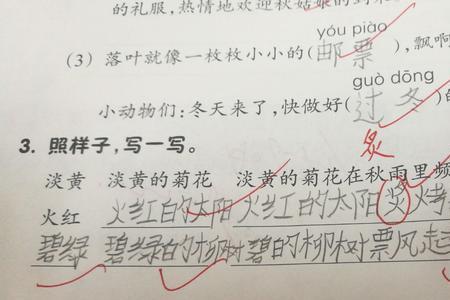 的礼服,热情地欢迎秋姑娘的到来
yóu piào
(3) 落叶就像一枚枚小小的(邮票),飘啊
guò dōng
小动物们:冬天来了,快做好(过冬)的
炙
3. 照样子,写一写。
淡黄 淡黄的菊花 淡黄的菊花在秋雨里频
火红 火红的太阳 火红的太阳炙烤
碧绿 碧绿的柳树 碧的柳树票风起